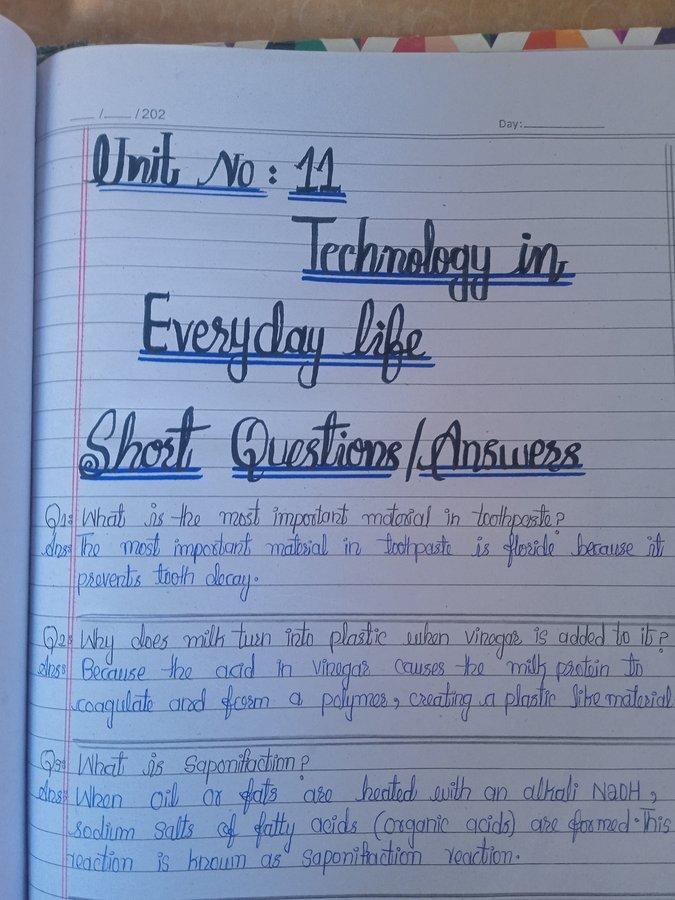 __/__/202
Day:
Unit No: 11
Technology in
Everyday life
Short Questions/Answers
Q1: What is the most important material in toothpaste?
Ans: The most important material in toothpaste is floride because it
prevents tooth decay.
Q2: Why does milk turn into plastic when vinegar is added to it?
Ans: Because the acid in vinegar causes the milk protein to
coagulate and form a polymer, creating a plastic like material
Q3: What is Saponifaction?
Ans: When oil or fats are heated with an alkali NaOH,
sodium salts of fatty acids (organic acids) are formed. This
reaction is known as saponifaction reaction.